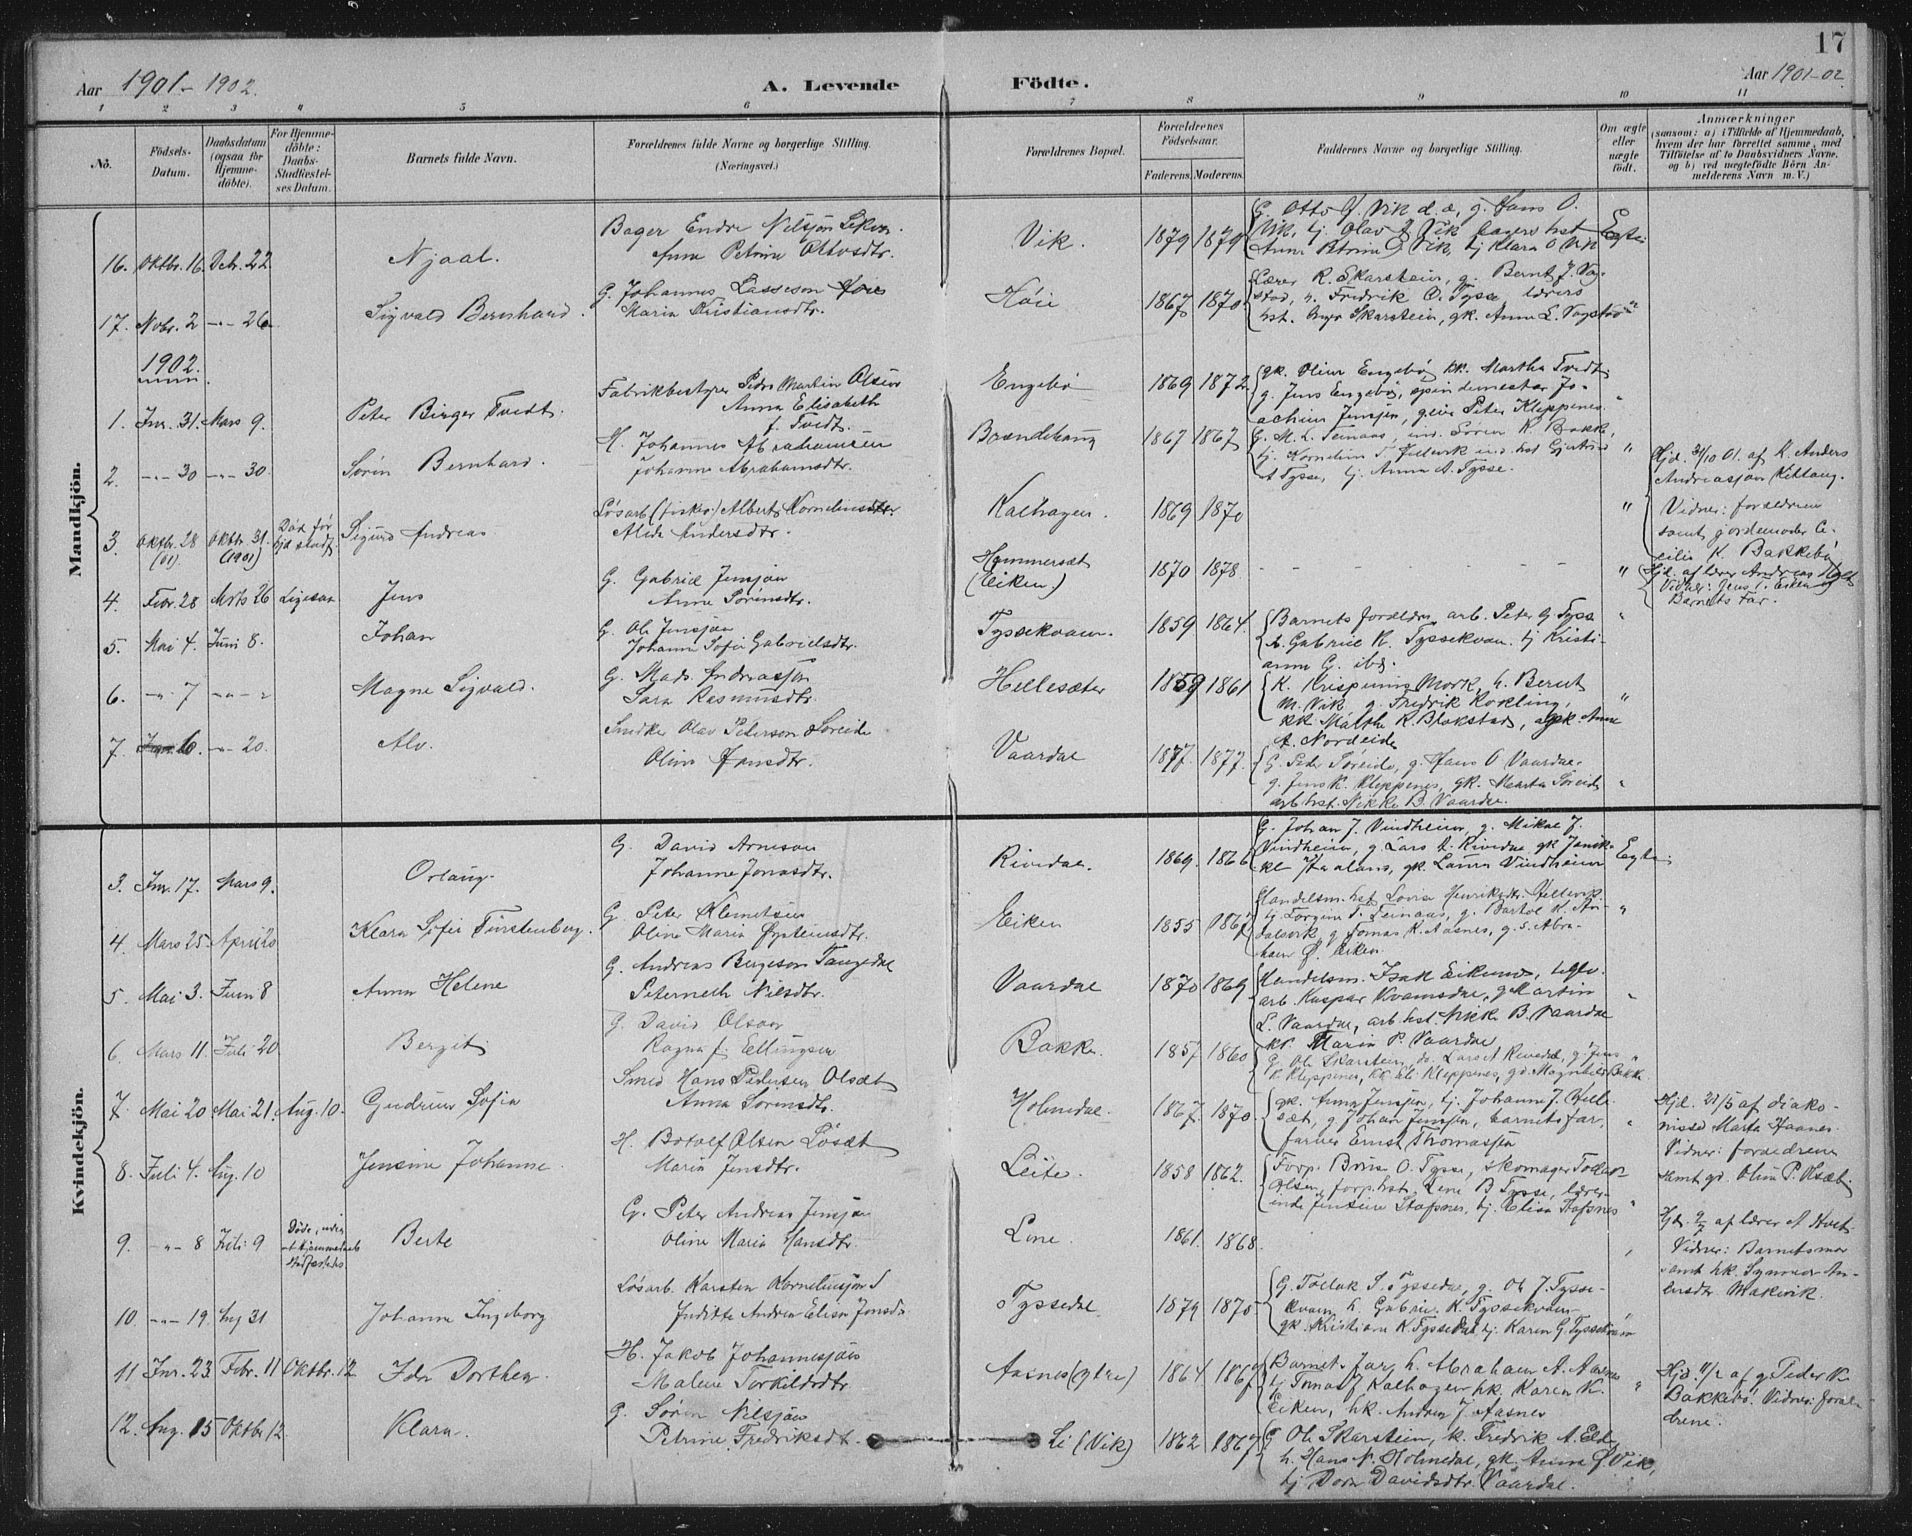 17
Aar 1901-1902.
A. Levende Födte.
Aar 1901-02
1 2 3 4 5 6 7 8 9 10 11
No.
Födsels-Datum.
Daabsdatum (ogsaa för Hjemme-döbte).
For Hjemme-döbte: Daabs-Stadfæstel-ses Datum.
Barnets fulde Navn.
Forældrenes fulde Navne og borgerlige Stilling. (Næringsvei.)
Forældrenes Bopæl.
Forældrenes Födselsaar.
Faderens. Moderens.
Faddernes Navne og borgerlige Stilling.
Om ægte eller uægte födt.
Anmærkninger
(saasom: a) i Tilfælde af Hjemmedaab,
hvem der har forrettet samme, med
Tilföielse af to Daabsvidners Navne,
og b) ved uægtefödte Börn An-
melderens Navn m. V.)
Mandkjön.
16. Oktbr. 16. Dcbr. 22
Njaal.
Bager Endre Nilsjøn
Anna Petrine Ottosdtr.
Vik.
1879 1879
G. Otto J. Vik d.æ, g. Hans O.
Vik, tj. Olav J Vik bagers hst
Anne Petrine O Vik, tj Klara O Vik
Egte
17. Novbr. 2 -"- 26
Sigvald Bernhard.
G. Johannes Lasseson Høie
Maria Kristiansdtr.
Høie
1867 1870
Lærer R. Skarstein, g. Bernt J. Vag-
stad, u. Fredrik O. Tysse, lærers
hst. Inger Skarstein, gk. Anna L. Vagstad "
1902.
1. Jnr. 31. Mars 9.
Peter Birger Tvedt.
Fabrikbestyrer Peder Martin Olsen
Anna Elisabeth
f. Tvedt.
Engebø
1869 1872
gk. Oline Engebø kk. Martha Tvedt
g. Jens Engebø, spindemester Jo-
achim Jensjøn, Peter Kleppenes. "
2. -"- 30 -"- 30.
Sørén Bernhard.
H. Johannes Abrahamsen
Johanne Abrahamsdtr.
Brændehaug
1867 1867
G. M. L. Teinaas, ind. Søren K. Bakke,
tj. Kornelius S. Hellevik ind. hst Gjertrud
A Tysse, tj. Anna A. Tysse. "
3. Oktbr. 28 (01) Oktbr. 31. (1901)
Død før Hjd stadf.
Sigurd Andreas
Løsarb (fisker) Albert Korneliussen
Alida Andersdtr.
Kalhagen.
1869 1870 "
Hjd. 31/10 01. af K. Anders
Andreasjøn Kittang.
Vidner: forældrene
samt jordemoder Ce-
cilia K. Bakkebø
4. Febr. 28 Mrts 26 Ligesaa
Jens
G. Gabriel Jensjøn
Anne Sørensdtr.
Hammersæt
(Eiken)
1870 1878. - - - - - "
Hjd. af lærer Andreas Hovt
Vidner: Jens I. Eiken og
Barnets Far.
5. Mai 4. Juni 8.
Johan
G. Ole Jensjøn
Johanne Sofie Gabrielsdtr.
Tyssekvam.
1859 1864.
Barnets forældre, arb. Peter G Tysse
h. Gabriel K. Tyssekvam. tj Kristi-
anna G. ibd. "
6. -"- 7 -"- "
Magne Sigvald.
G. Mads Andreasjøn
Sara Rasmusdtr.
Hellesæter
1859 1861
K. Krispinus Mork, h. Bernt
M. Vik g. Fredrik Kokling,
kk Malthe K. Blokstad, gk Anne
A. Nordeide "
7. 6. -"- 20.
Alv.
Snedker Olav Peterson Søreide
Oline Hansdtr.
Vaardal
1877. 1877.
G. Peter Søreide, g. Hans O Vaardal.
g. Jens K. Kleppenes, gk. Marta Søreide
arb. hst. Nikke B. Vaardal. "
Kvindekjön.
3. Jnr. 17. Mars 9.
Orlaug.
G. David Arneson
Johanne Jonasdtr.
Rivedal.
1869. 1866
G. Johan J. Vindheim, g. Mikal J.
Vindheim, g Lars A. Rivedal gk Janik-
ke Staalans, gk. Laura Vindheim
Egte
4. Mars 25. April 20
Klara Sofie Fürstenberg.
G. Peter Klemetsen
Oline Maria Øysteinsdtr.
Eiken
1855 1862
Handelsm. hst Lovise Henriksdtr. Hellevik
tj Torgine T. Teinaas, g. Bartol K. Ar-
dalsvik, g Tomas K. Aasnes, g.s. Abra-
ham Ø. Eiken. "
5. Mai 3. Juni 8
Anna Helene
G. Andreas Bergeson Taugedal
Peterneth Nilsdtr.
Vaardal
1870 1869
Handelsm. Isak Eikenes,
arb. Kaspar Kvamsdal, g Martin
L. Vaardal, arb. hst. Nikke B. Vaardal
kk. Maria P. Vaardal "
6. Mars 11. Juli 20
Bergit
G. David Olson
Ragna f. Ellingsen
Bakke.
1857 1860
G. Ole Skarstein, do. Lars A Rivedal, g. Jens
K Kleppenes, kk Eli Kleppenes, gd. Magnhild Bakke. "
7. Mai 20 Mai 21. Aug. 10.
Gudrun Sofia
Smed Hans Pedersen Olsæt
Anna Sørensdtr.
Holmedal.
1867. 1870.
gk. Anna Jensjøn, tj. Johanne J. Helle-
sæt, g Johan Jensjøn, barnets far,
farver Ernst Thomasjøn "
Hjd. 21/5 af diako-
nisse Marta Haanes.
Vidner: forældrene
samt gd. Olina P. Olsæt.
8. Juli 4. Aug. 10
Jensine Johanne.
H. Botolf Olsen Løsæt
Maria Jensdtr.
Leite.
1858 1862.
Forp. Brus O. Tysse, skomager Tollak
Olsen, forp. hst. Lene B Tysse, lærer-
inde Jensine Stafsnes, tj. Elisa Stafsnes "
9. -"- 8 Juli 9
Døde, uden at hjemmedaab stadfæstedes
Berte
G. Peter Andreas Jensjøn
Oline Maria Hansdtr.
Line.
1861. 1868. "
Hjd. 9/7 af lærer A Hovt
Vidner: Barnets mor
samt hk. Synnøve An-
ensdtr Makivik.
10. -"- 19. Aug 31
Johanna Ingeborg
Løsarb. Karsten Korneliusjøn S
Juditte Andrea Elisa Jonsdtr
Tyssedal
1879 1875
G. Tollak S. Tyssedal, g. Ole J. Tysse-
kvam, h. Gabriel K. Tyssekvam
gk. Kristiane K Tyssedal tj. Karen G. Tyssekvam "
11 Jnr. 23. Febr. 11 Oktbr. 12
Ida Dorthea.
H. Jakob Johannesjøn
Malene Torkildsdtr.
Aasnes (ytre)
1864. 1867
Barnets far, h. Abraham A. Aasnes
tj Tomas J Kalhagen hk. Karen K.
Eiken, hk. Andrea J. Aasnes "
Hjd. 11/2 af g Peder K.
Bakkebø. Vidner: foræl-
drene.
12. Aug. 15 Oktbr 12.
Klara.
G. Søren Nilsjøn
Petrine Fredriksdtr.
Li (Vik)
1862 1867
G Ole Skarstein, k. Fredrik A. Elde,
h. Hans N. Holmedal, gk. Anna Ø Vik,
tj Dorn Davidsdtr. Vaardal.